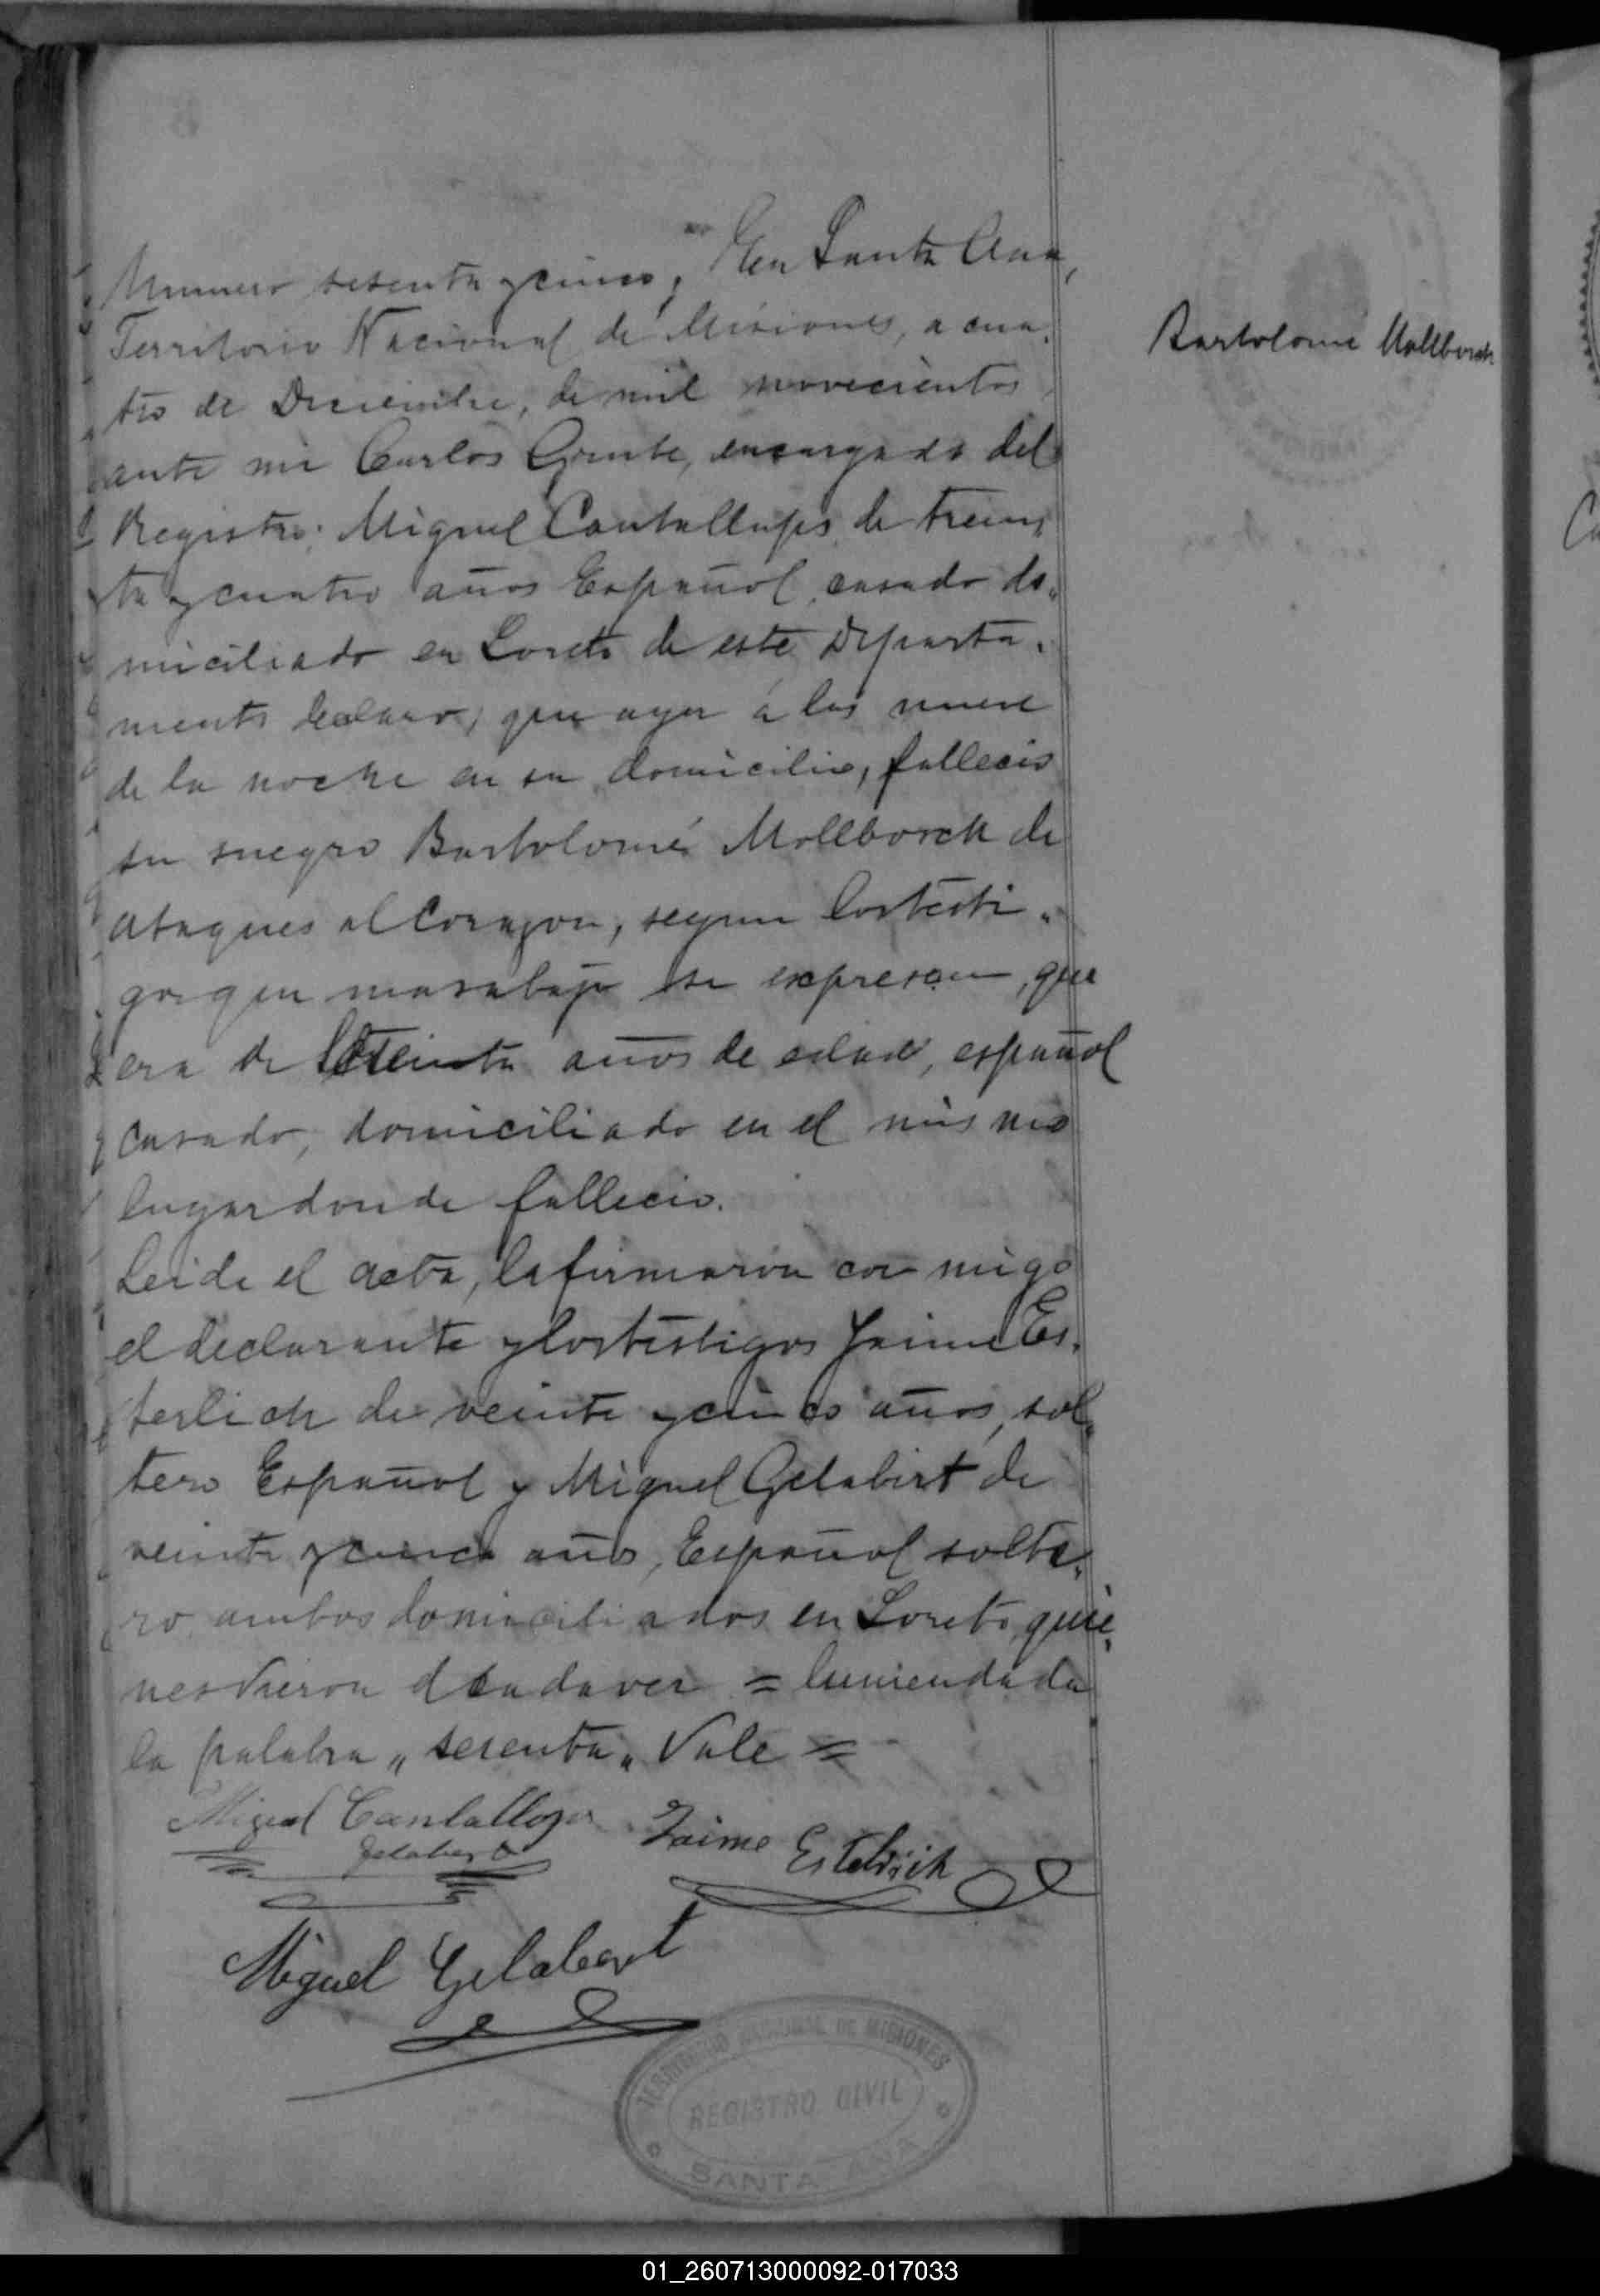 Numero sesenta y cinco, En Santa Ana,
Territorio Nacional de Misiones, a cua„
tro de Diciembre, de mil novecientos
ante mi Carlos encargado del
Registro: Miguel Cantallups de trein„
ta y cuatro años Español, casado do„
miciliado en Loreto de este Departa„
mento declaro, que ayer á las nueve
de la noche en su domicilio, fallecio
su suegro Bartolomé Mollborch de
ataques al Corazon, segun los testi„
gos que mas abajo se expresan, que
era de años de edad, español
casado, domiciliado en el mismo
lugar donde fallecio.
Leida el acta, la firmaron con migo
el declarante y los testigos Jaime Es„
terlich de veinte y cinco años, sol„
tero Español y Miguel Gelabert de
veinte y cinco años, Español solte„
ro ambos domiciliados en Loreto, quie„
nes vieron el cadaver = Enmendada
la palabra „ sesenta „ Vale =
Miguel Cantallops
Gelabert
Jaime Estelrich
Miguel Gelabert
Bartolome Mollborch
TERRITORIO NACIONAL DE MISIONES
REGISTRO CIVIL
SANTA ANA
01_260713000092-017033